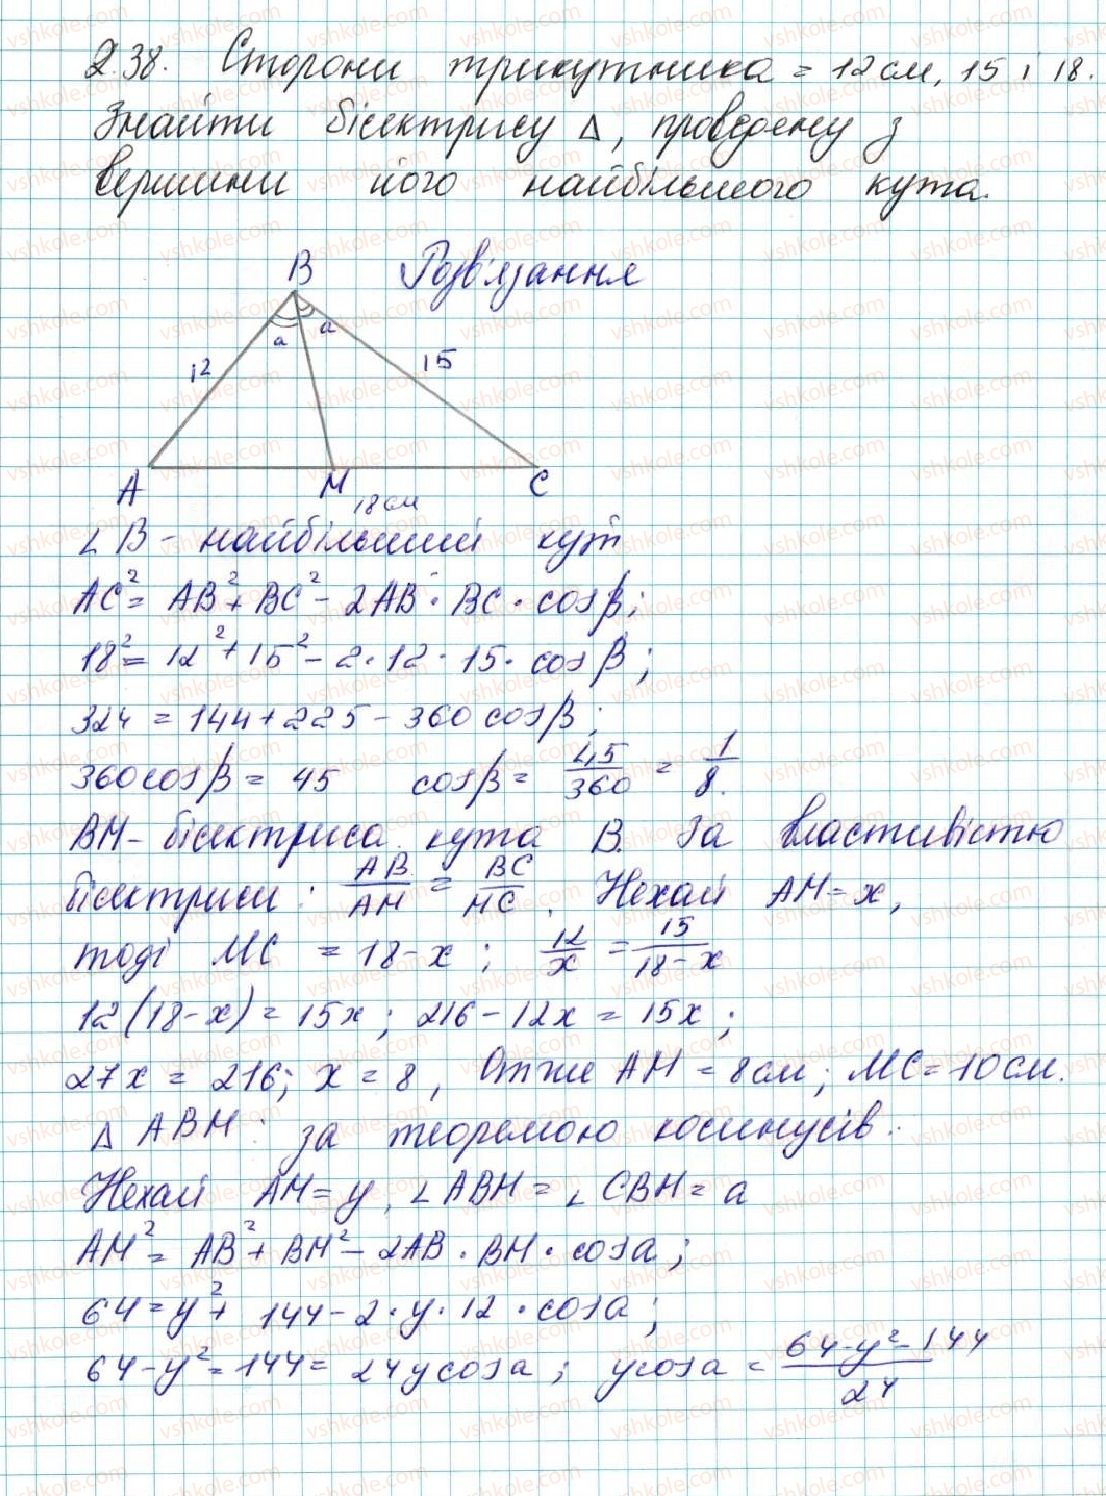 2.38. Сторони трикутника = 12 см, 15 і 18.
Знайти бісектрису Δ, проведену з
вершини його найбільшого кута.
B Розв'язання
a a
12 15
A M C
18 см
∠B - найбільший кут
AC² = AB² + BC² - 2AB · BC · cosβ;
18² = 12² + 15² - 2 · 12 · 15 · cosβ;
324 = 144 + 225 - 360 cosβ;
360cosβ = 45 cosβ = 45/360 = 1/8.
BM - бісектриса кута B. За властивістю
бісектриси: AB/AM = BC/MC. Нехай AM = x,
тоді MC = 18 - x; 12/x = 15/18-x
12(18 - x) = 15x; 216 - 12x = 15x;
27x = 216; x = 8, Отже AM = 8 см; MC = 10 см.
Δ ABM: за теоремою косинусів:
Нехай AM = y, ∠ABM = ∠CBM = a
AM² = AB² + BM² - 2AB · BM · cosa;
64 = y² + 144 - 2 · y · 12 · cosa;
64 - y² = 144 = 24ycosa; ycosa = 64-y²-144/24